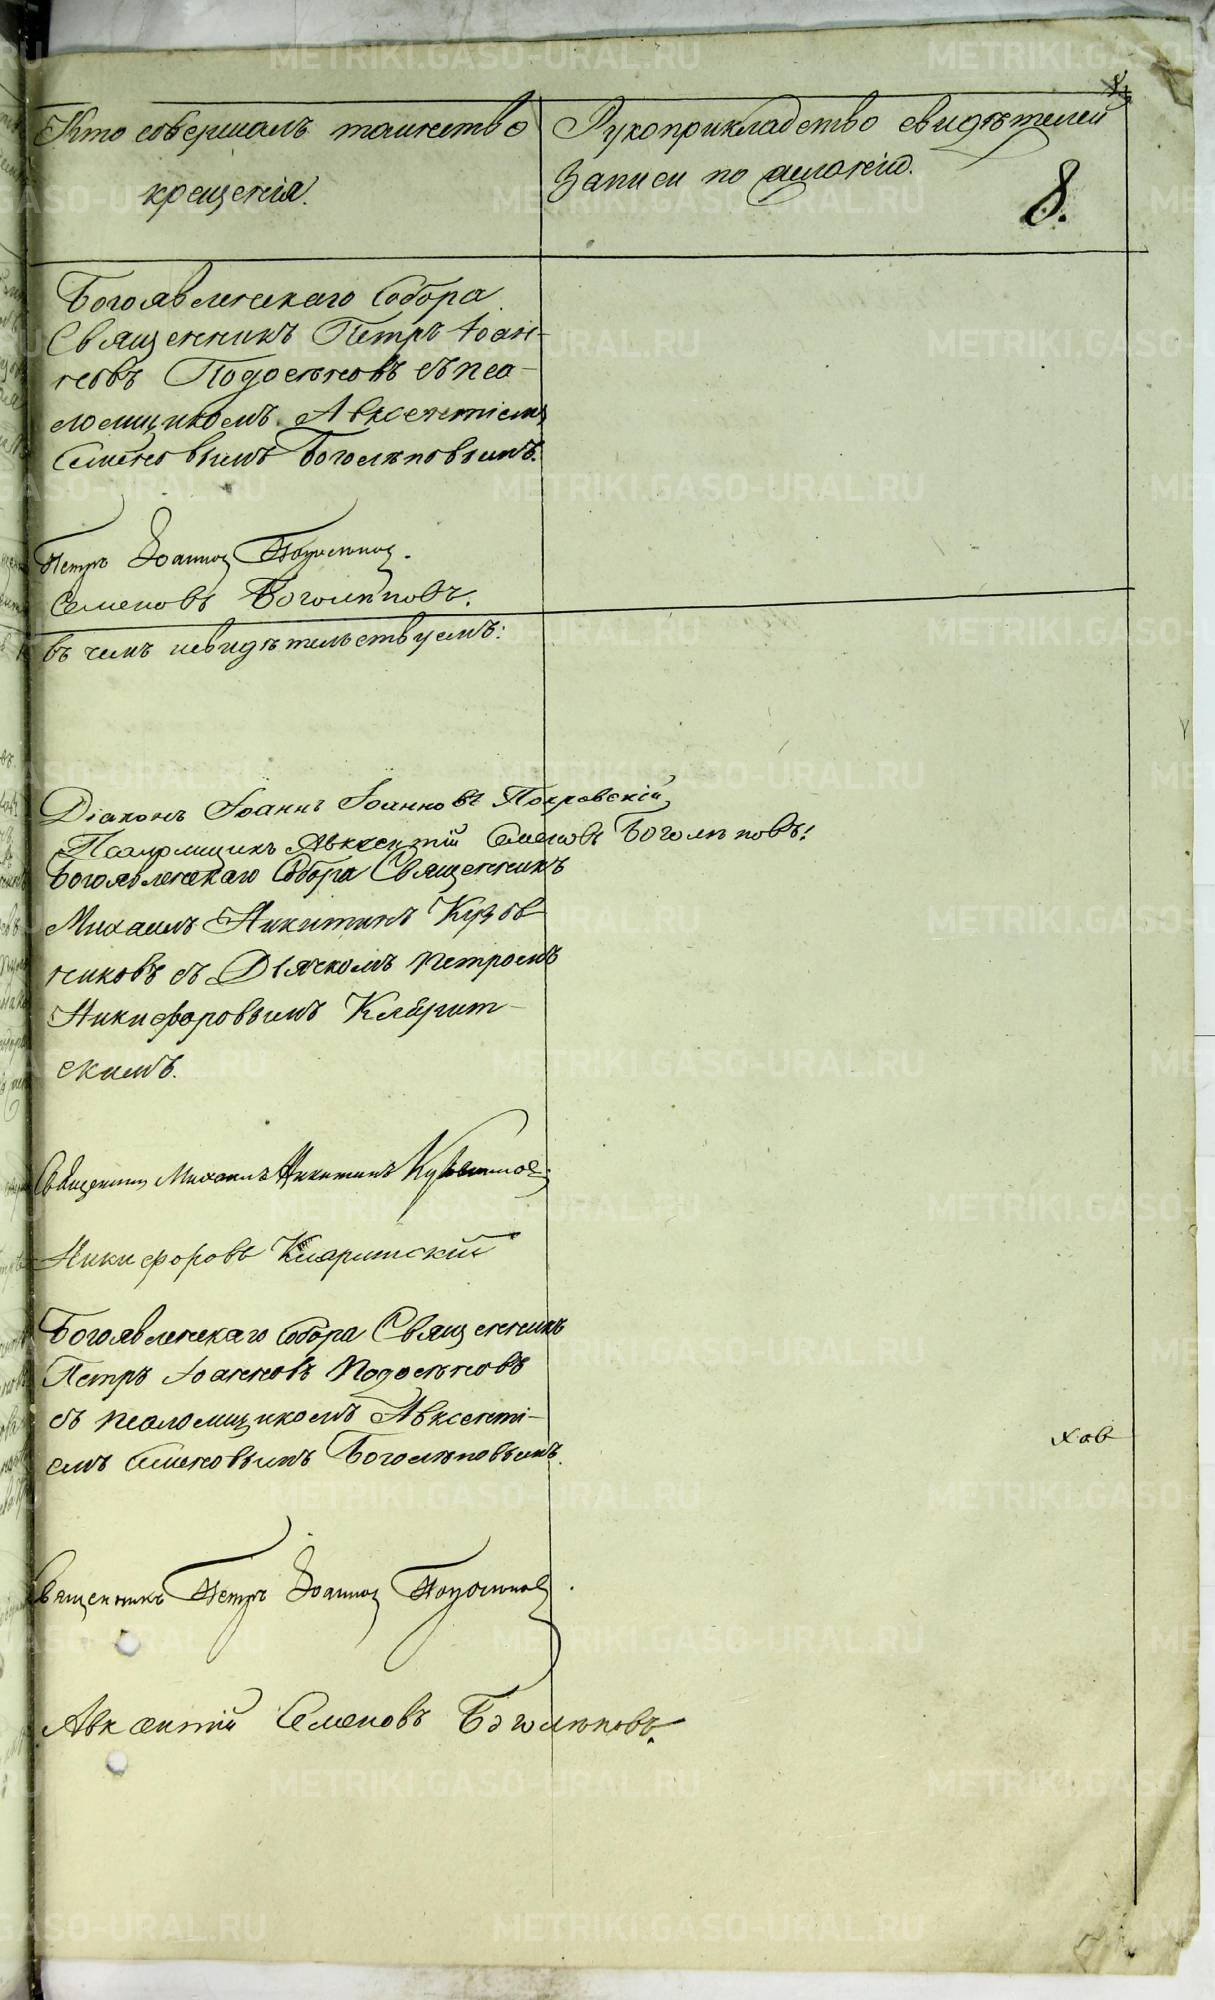 Кто совершалъ таинство
крещенія.
Рукоприкладство свидѣтелей
записи по желанію.
8.
Богоявленскаго Собора
Священникъ Петръ Іоан-
новъ Подосеновъ съ пса-
ломщикомъ Авксентіемъ
Семеновымъ Боголѣповымъ.
Петръ Іоанновъ
Семеновъ Боголѣповъ.
въ чемъ и свидѣтельствуемъ:
Діаконъ Іоаннъ Іоанновъ Покровскій
Псаломщикъ Авксентій Семеновъ Боголѣповъ.
Богоявленскаго Собора Священникъ
Михаилъ Никитинъ
съ Дьячкомъ Петромъ
Никифоровымъ
скимъ.
Священникъ Михаилъ Никитинъ
Никифоровъ
Богоявленскаго Собора Священникъ
Петръ Іоанновъ Подосеновъ
съ псаломщикомъ Авксенті-
емъ Семеновымъ Боголѣповымъ.
хов
Священникъ Петръ Іоанновъ
Авксентій Семеновъ Боголѣповъ.
METRIKI.GASO-URAL.RU